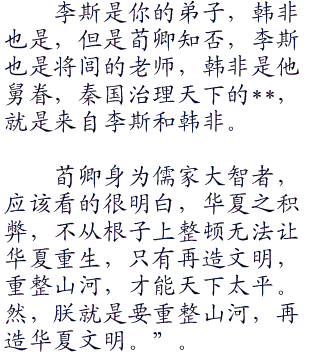 李斯是你的弟子，韩非
也是，但是荀卿知否，李斯
也是将闾的老师，韩非是他
舅眷，秦国治理天下的**，
就是来自李斯和韩非。
荀卿身为儒家大智者，
应该看的很明白，华夏之积
弊，不从根子上整顿无法让
华夏重生，只有再造文明，
重整山河，才能天下太平。
然，朕就是要重整山河，再
造华夏文明。”。